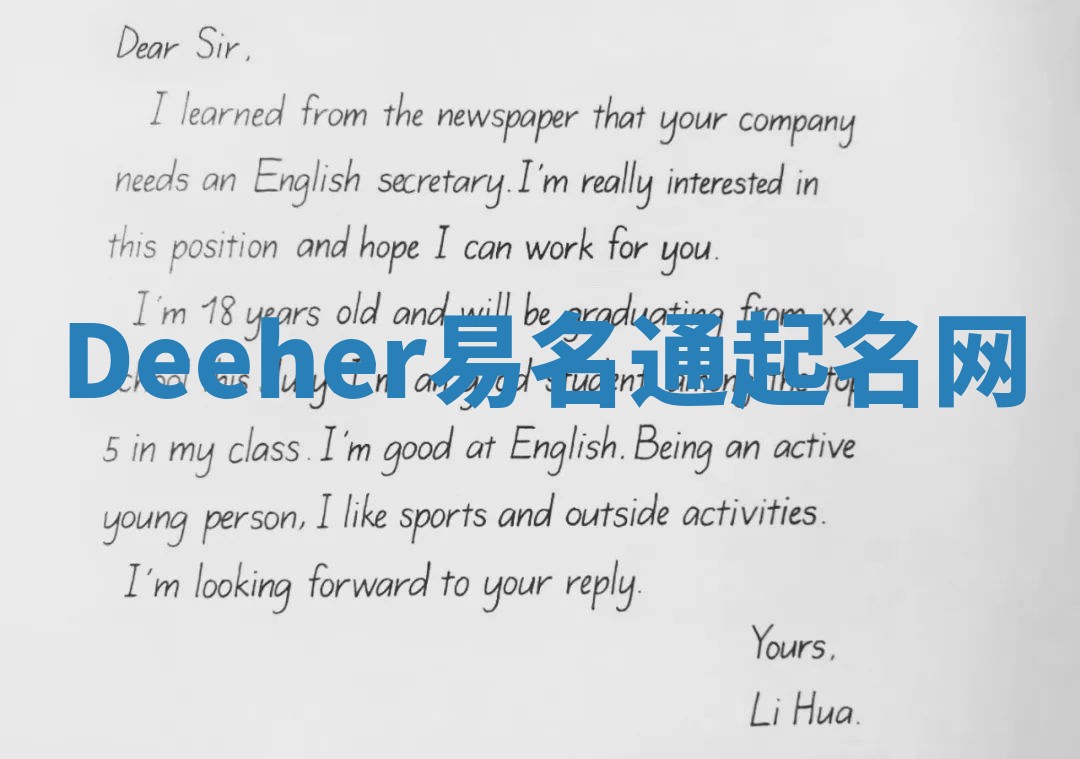 Dear Sir,
I learned from the newspaper that your company
needs an English secretary. I'm really interested in
this position and hope I can work for you.
I'm 18 years old and will be graduating from xx
Deeher易名通起名网
school this July. I'm an good student among the top
5 in my class. I'm good at English. Being an active
young person, I like sports and outside activities.
I'm looking forward to your reply.
Yours,
Li Hua.